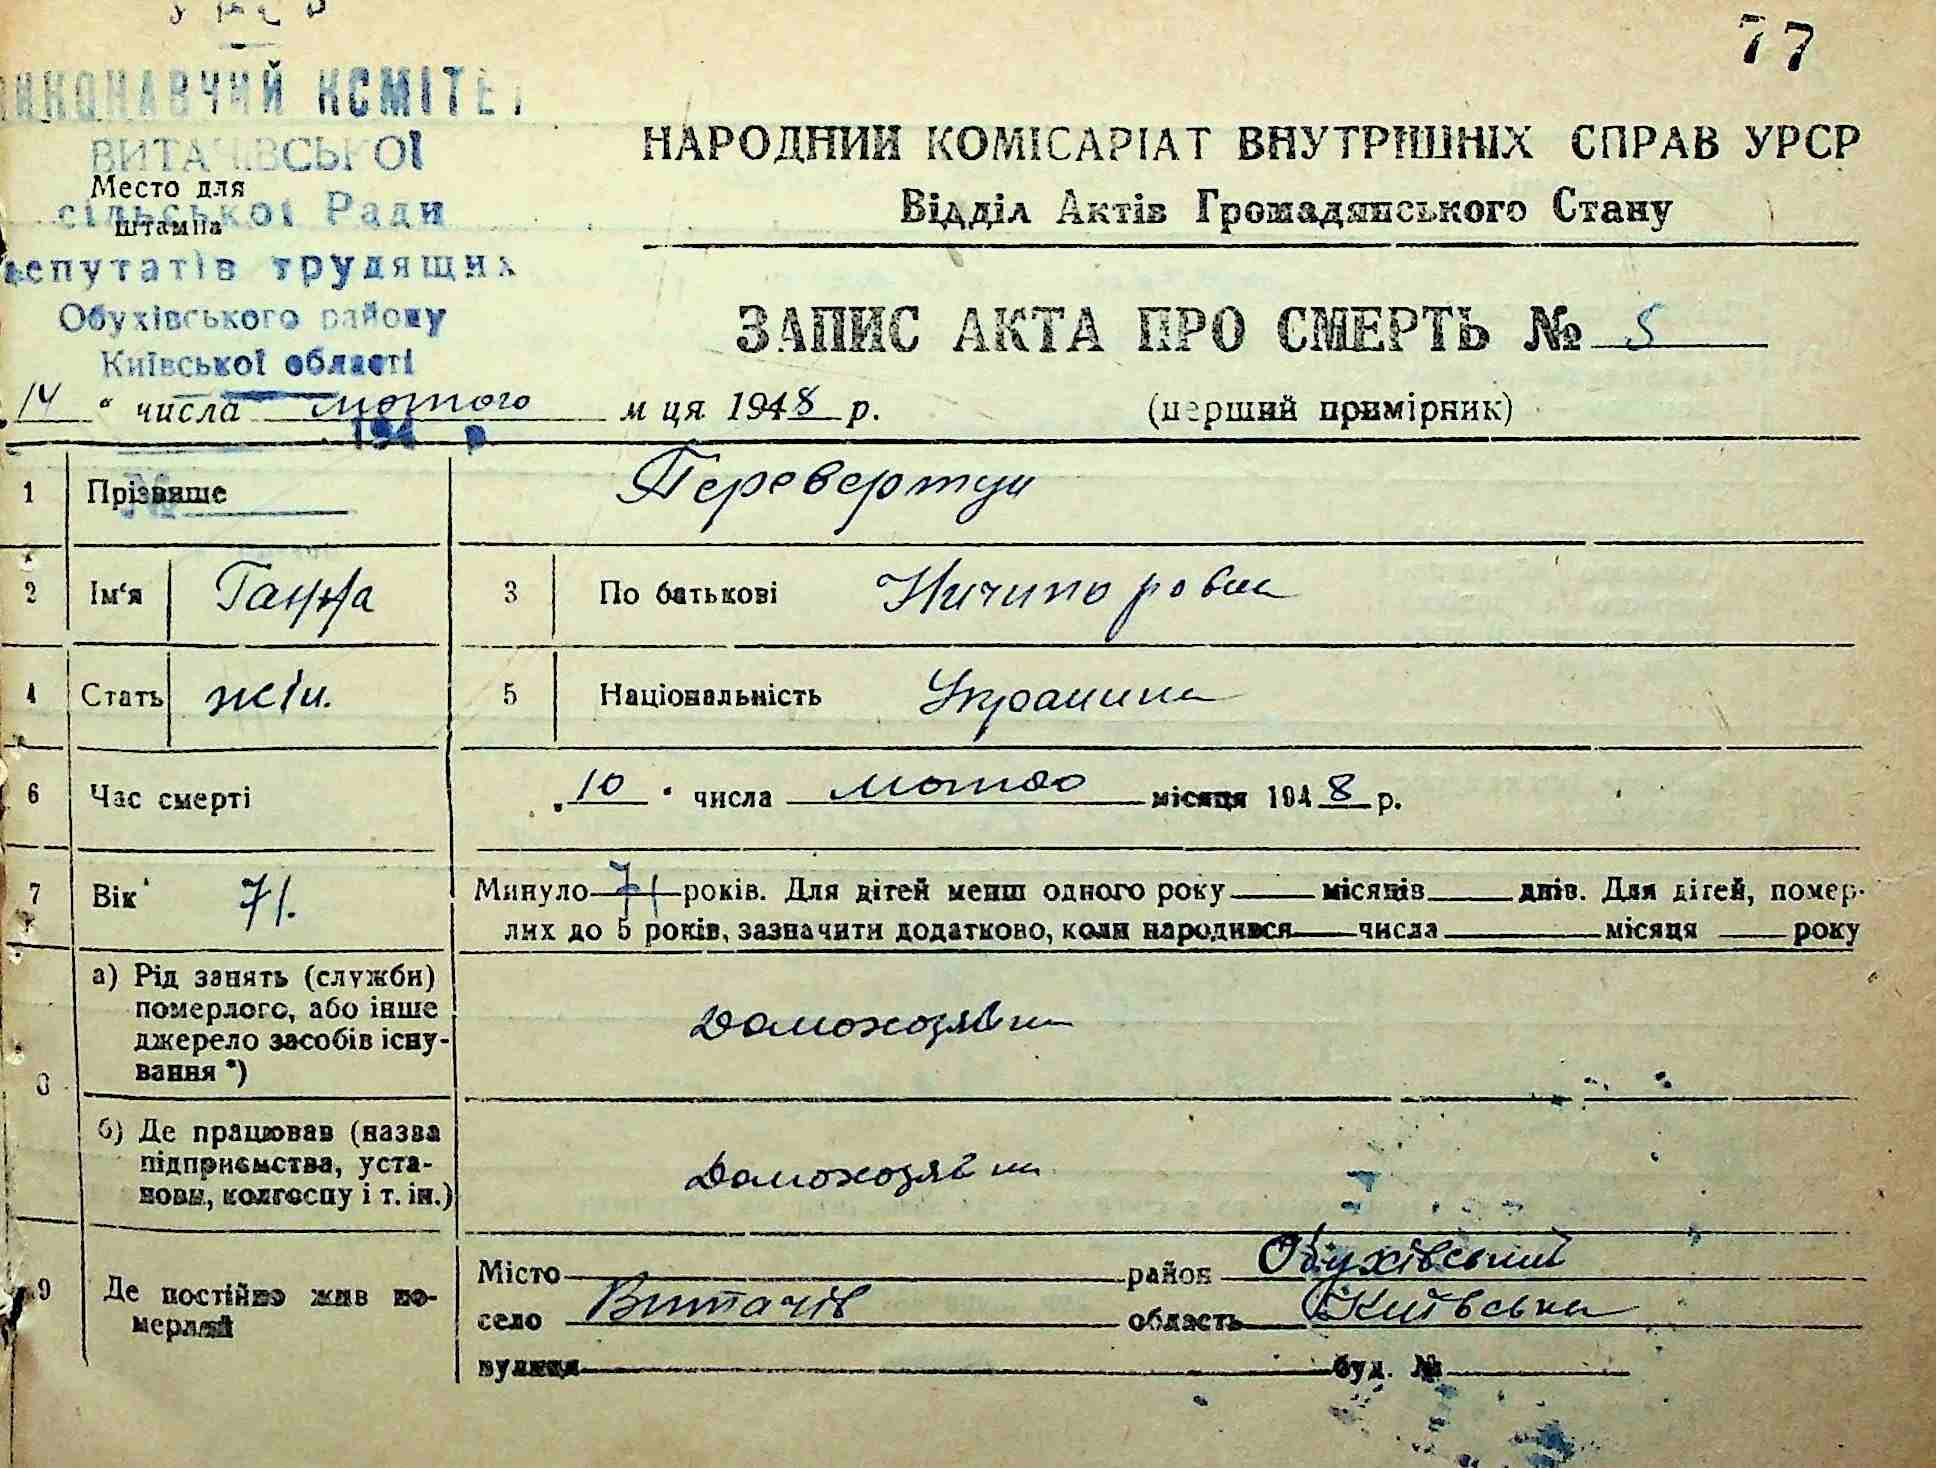 УРСР
77
ВИКОНАВЧИЙ КОМІТЕТ
ВИТАЧІВСЬКОЇ
Место для
сільської Ради
штампа
депутатів трудящих
Обухівського району
Київської області
194 р.
№
НАРОДНИЙ КОМІСАРІАТ ВНУТРІШНІХ СПРАВ УРСР
Відділ Актів Громадянського Стану
ЗАПИС АКТА ПРО СМЕРТЬ № 5
„14 “ числа лютого м ця 1948 р. (перший примірник)
1 Прізвище Перевертун
2 Ім‘я Ганна 3 По батькові Ничипоровна
4 Стать жін. 5 Національність Украинка
6 Час смерті „10 “ числа лютого місяця 1948 р.
7 Вік 71. Минуло 71 років. Для дітей менш одного року місяців днів. Для дітей, помер-
лих до 5 років, зазначити додатково, коли народився числа місяця року
8 а) Рід занять (служби)
померлого, або інше
джерело засобів існу-
вання *)
Домохозяйка
б) Де працював (назва
підприємства, уста-
нови, колгоспу і т. ін.)
Домохозяйка
9 Де постійно жив по-
мерлий
Місто район Обухівський
село Витачів область Київська
вулиця буд. №